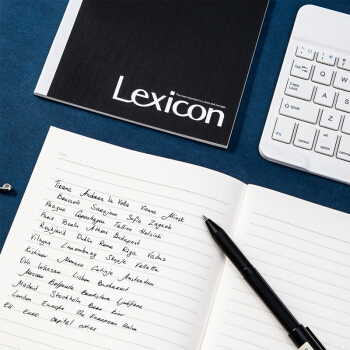 Lexicon
Tirana Andorra la Vella Vienna Minsk
Brussels Sarajevo Sofia Zagreb
Prague Copenhagen Tallinn Helsinki
Paris Berlin Athens Budapest
Reykjavik Dublin Rome Riga Vaduz
Vilnyus Luxembourg Skopje Valletta
Kishinev Monaco Cetinje Amsterdam
Oslo Warsaw Lisbon Bucharest
Moscow Belgrade Bratislava Ljubljana
Madrid Stockholm Bern
London Europe The European Union
EU Euro capital cities
Tab
Caps Lock
Shift
Ctrl
Q
W
A
S
Z
X